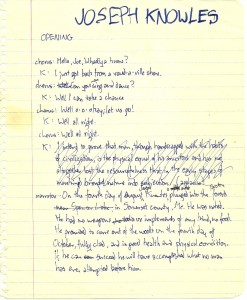 JOSEPH KNOWLES
OPENING
chorus: Hello, Joe, Whatya know?
K: I just got back from a vaud-a-ville show.
chorus: Can you sing and dance?
K: Well I can take a chance
chorus: Well o-o-okay, let us go!
K: Well all right.
chorus: Well all right.
K: I intend to prove that man, though handicapped with the habits
of civilization, is the physical equal of his ancestors and has not
altogether lost the resourcefulness that in the early stages of
narrator: On the fourth day of August, Knowles plunged into the forest
in Somerset county, Me. He was noted.
He had no weapons or implements of any kind, no food.
He promised to come out of the woods on the fourth day of
October, fully clad, and in good health and physical condition.
If he can succeed he will have accomplished what no man
has ever attempted before him.